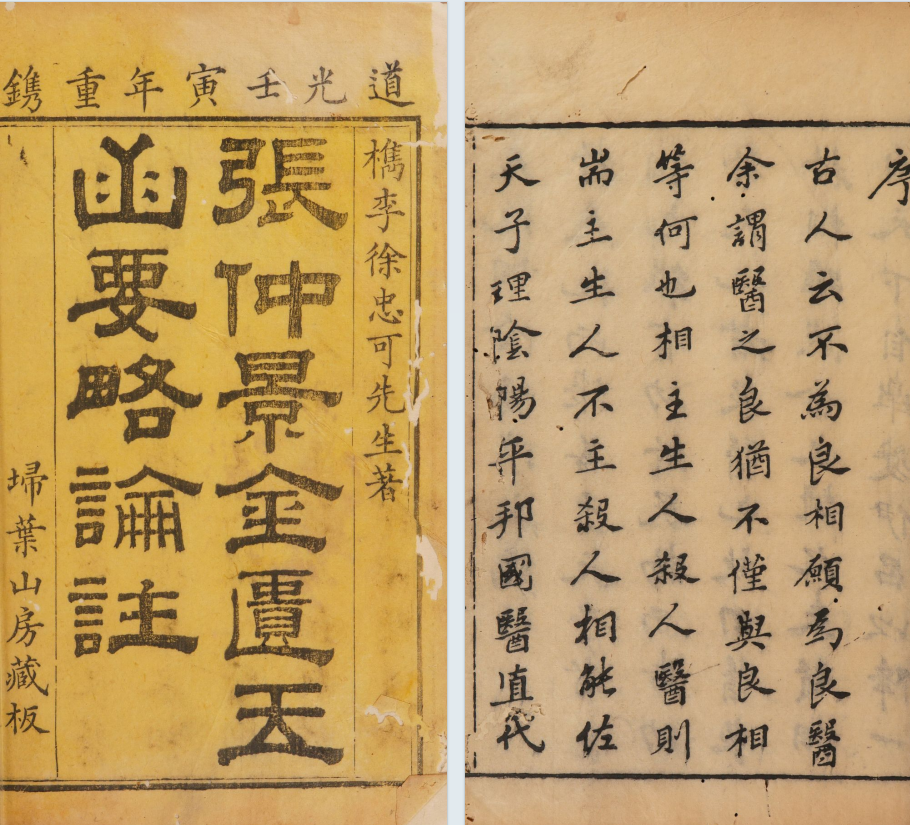 道光壬寅年重鐫
檇李徐忠可先生著
張仲景金匱玉
函要略論註
埽葉山房藏板
序
古人云不為良相願為良醫
余謂醫之良猶不僅與良相
等何也相主生人殺人醫則
耑主生人不主殺人相能佐
天子理陰陽平邦國醫直代